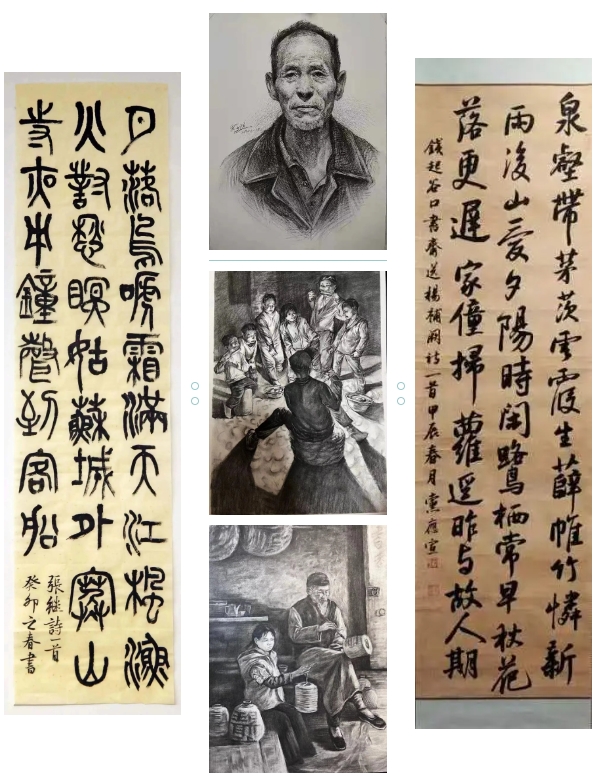 月落烏啼霜滿天江楓漁
火對愁眠姑蘇城外寒山
寺夜半鐘聲到客船
張继詩一首
癸卯之春書
泉壑帶茅茨雲霞生薜帷竹憐新
雨後山愛夕陽時閑鷺栖常早秋花
落更遲家僮掃蘿逕昨与故人期
錢起谷口書齋送楊補闕詩一首甲辰春月